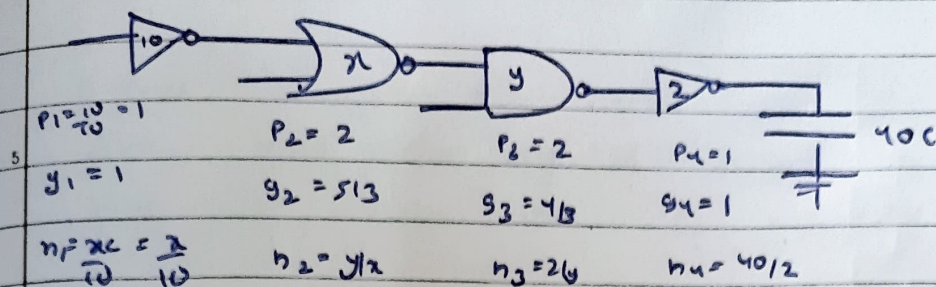 10 x y 2
40C
P1 = 10/10 = 1 P2 = 2 P3 = 2 P4 = 1
5
g1 = 1 g2 = 5/3 g3 = 4/3 g4 = 1
h1 = xc/10 = x/10 h2 = y/x h3 = 2/y h4 = 40/2